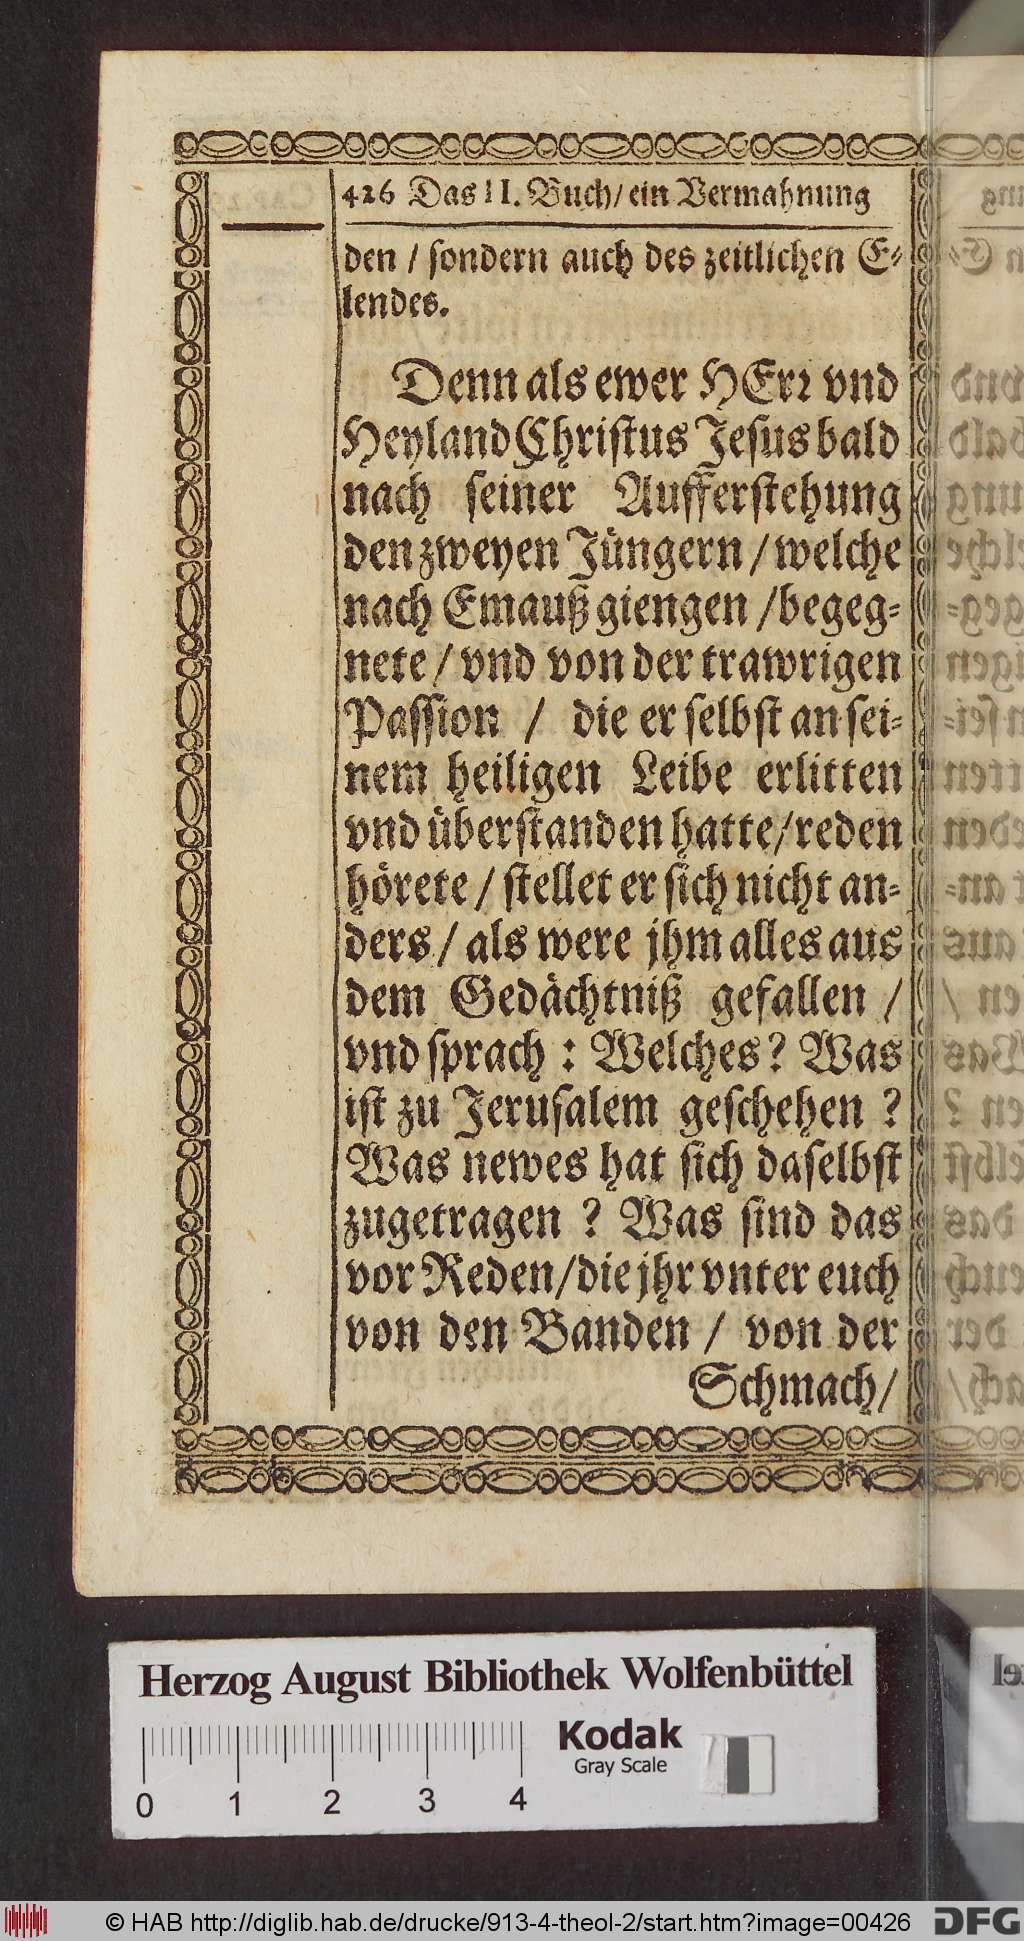 426 Das II. Buch/ ein Vermahnung
den / sondern auch des zeitlichen E⸗
lendes.
Denn als ewer HErr vnd
Heyland Christus Jesus bald
nach seiner Aufferstehung
den zweyen Jüngern / welche
nach Emauß giengen / begeg⸗
nete / vnd von der trawrigen
Passion / die er selbst an sei⸗
nem heiligen Leibe erlitten
vnd überstanden hatte / reden
hörete / stellet er sich nicht an⸗
ders / als were jhm alles aus
dem Gedächtniß gefallen /
vnd sprach : Welches? Was
ist zu Jerusalem geschehen ?
Was newes hat sich daselbst
zugetragen ? Was sind das
vor Reden/die jhr vnter euch
von den Banden / von der
Schmach/
Herzog August Bibliothek Wolfenbüttel
Kodak
Gray Scale
0 1 2 3 4
© HAB http://diglib.hab.de/drucke/913-4-theol-2/start.htm?image=00426
DFG